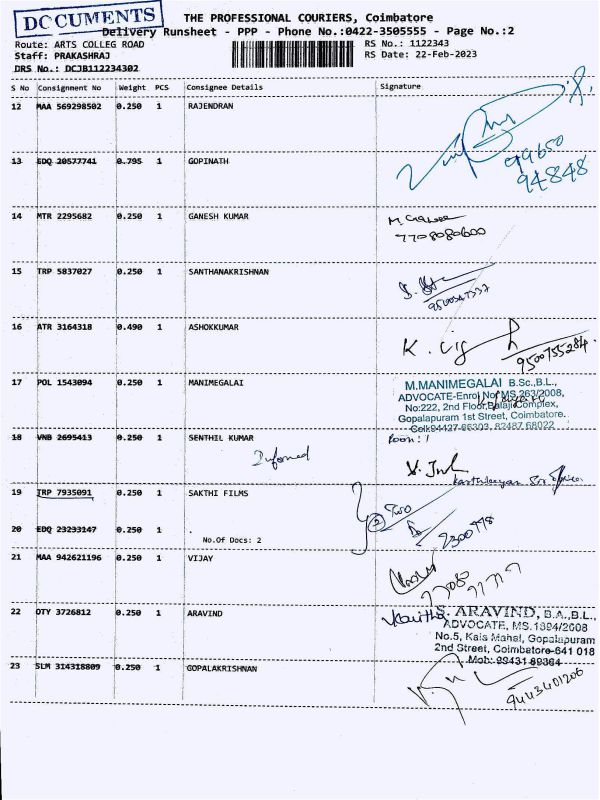 DOCUMENTS
THE PROFESSIONAL COURIERS, Coimbatore
Delivery Runsheet - PPP - Phone No.:0422-3505555 - Page No.:2
Route: ARTS COLLEG ROAD
RS No.: 1122343
Staff: PRAKASHRAJ
RS Date: 22-Feb-2023
DRS No.: DCJB112234302
S No Consignment No Weight PCS Consignee Details Signature
12 MAA 569298502 0.250 1 RAJENDRAN
94848
13 EDQ 20577741 0.795 1 GOPINATH
14 MTR 2295682 0.250 1 GANESH KUMAR
7708080600
15 TRP 5837027 0.250 1 SANTHANAKRISHNAN
16 ATR 3164318 0.490 1 ASHOKKUMAR
9500755284.
17 POL 1543094 0.250 1 MANIMEGALAI
M.MANIMEGALAI B.Sc.,B.L.,
ADVOCATE-Enrol No: MS.263/2008,
No:222, 2nd Floor, Balaji Complex,
Gopalapuram 1st Street, Coimbatore.
Cell:94427 65303, 82487 68022
18 VNB 2695413 0.250 1 SENTHIL KUMAR
Informed
19 TRP 7935091 0.250 1 SAKTHI FILMS
Two
2
20 EDQ 23233147 0.250 1 .
No.Of Docs: 2
21 MAA 942621196 0.250 1 VIJAY
22 OTY 3726812 0.250 1 ARAVIND
S. ARAVIND, B.A.,B.L.,
ADVOCATE, MS.1894/2008
No.5, Kais Mahal, Gopalapuram
2nd Street, Coimbatore-641 018
Mob: 99431 69364
23 SLM 314318809 0.250 1 GOPALAKRISHNAN
9443401206